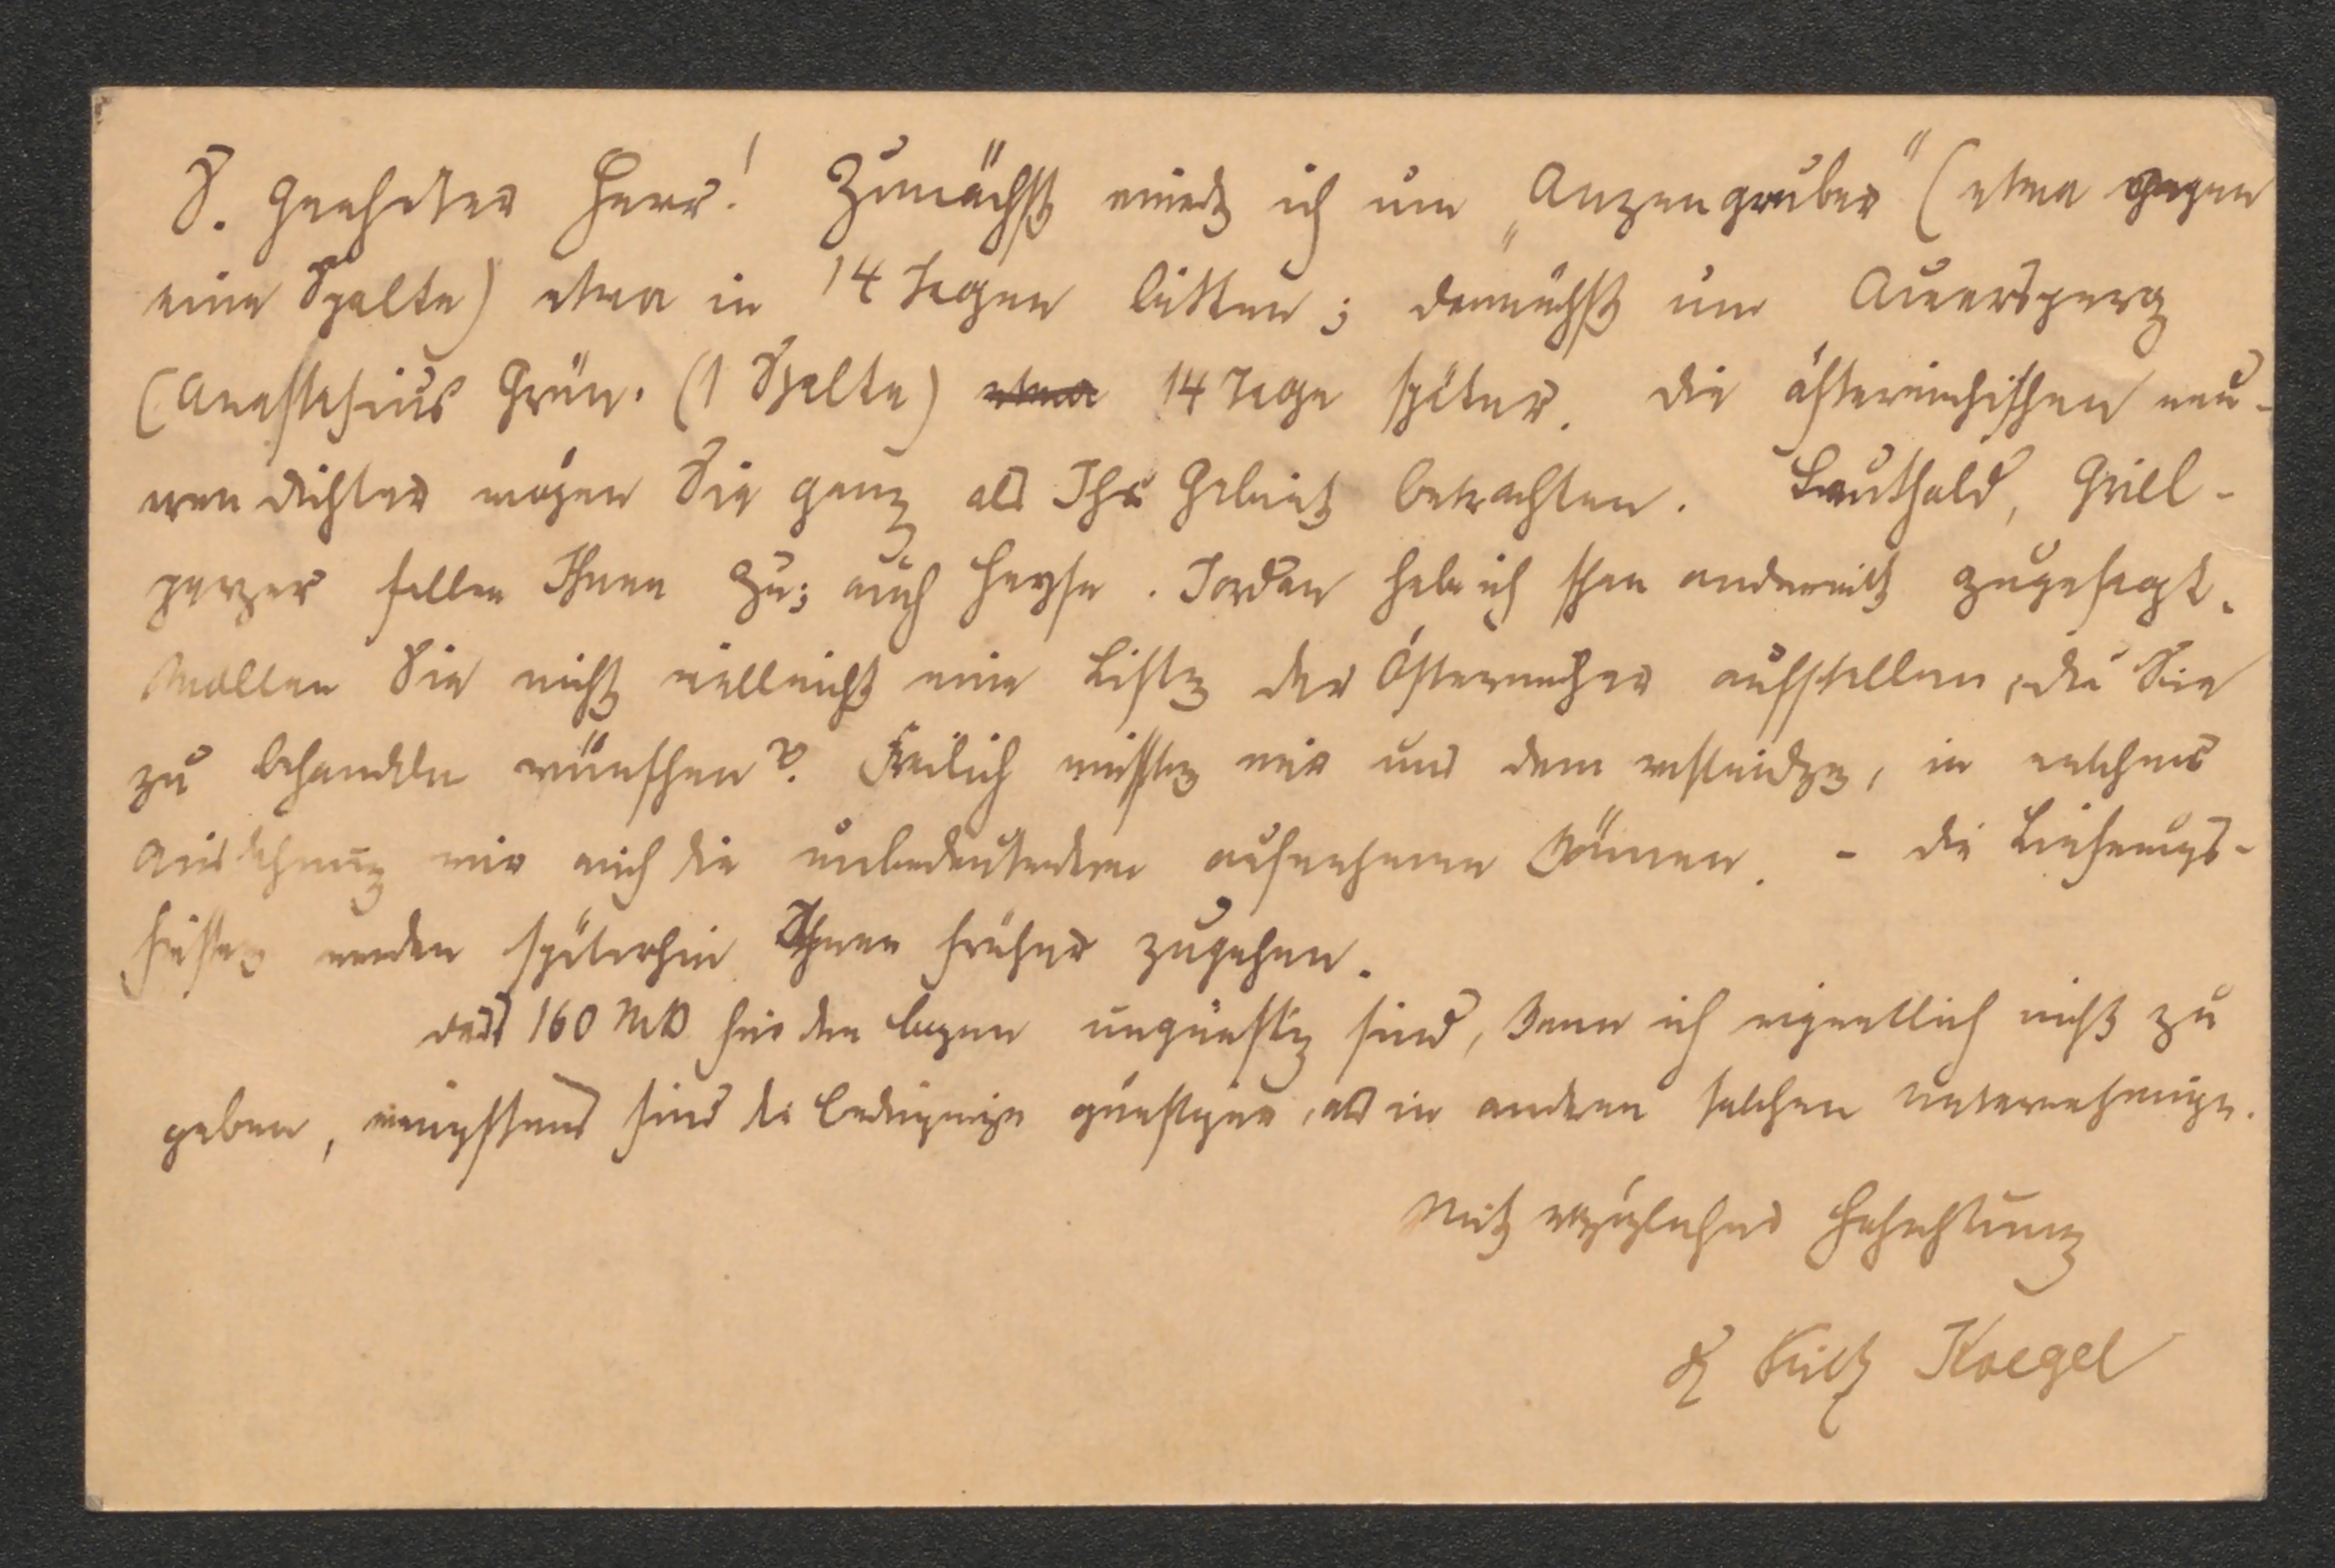 S. Geehrter Herr! Zunächst würde ich um „Anzengruber" (etwa gegen
eine Spalte) etwa in 14 Tagen bitten; demnächst um Auersperg
(Anastasius Grün. (1 Spalte) etwa 14 Tage später. Die östereichischen neu-
eren Dichter mögen Sie ganz als Ihr Gebiet betrachten. Leuthold, Grill-
parzer fallen Ihnen zu; auch Heyse. Jordan habe ich schon anderweit zugesagt.
Wollen Sie nicht vielleicht eine Liste der Östereicher aufstellen, die Sie
zu behandeln wünschen? Freilich müssten wir uns dann verständigen, in welcher
Ausdehnung wir auch die unbedeutenderen aufnehmen können. – Die Lieferungs-
fristen werden späterhin Ihnen früher zugehen.
Dass 160 Mk für den Bogen ungünstig sind, kann ich eigentlich nicht zu
geben, wenigstens sind die Bedingungen günstiger, als in anderen solchen Unternehmungen.
Mit vorzüglicher Hochachtung
Dr Fritz Koegel